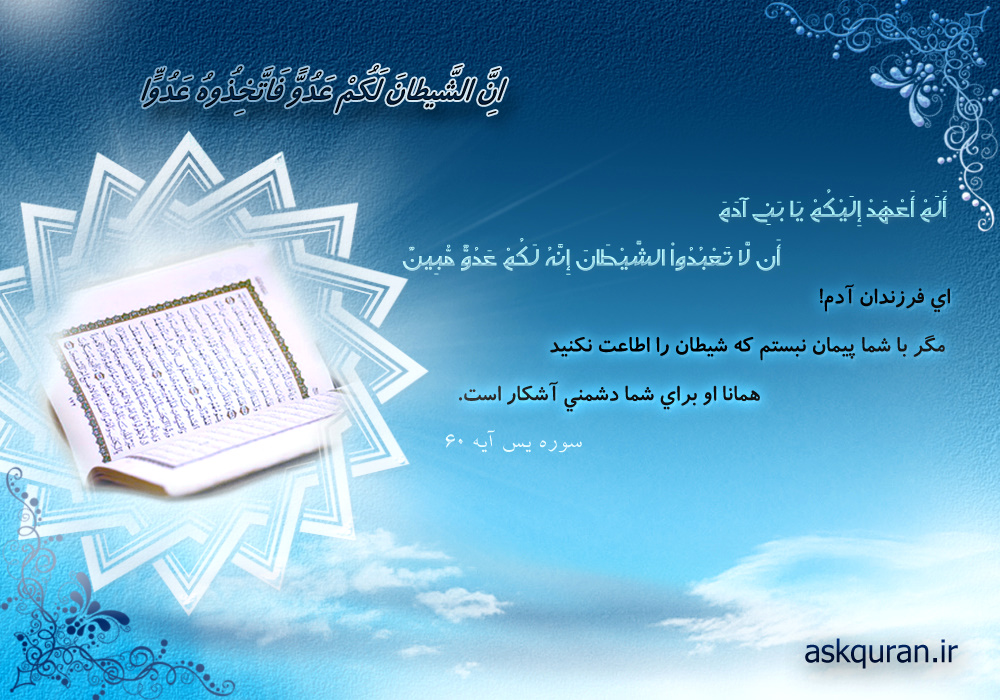 انَِّ الشَّيطانَ لَكُمْ عَدُوٌّ فَاتَّخِذُوهُ عَدُوًّا
أَلَمْ أَعْهَدْ إِلَيْكُمْ يَا بَنِي آدَمَ
أَن لَّا تَعْبُدُوا الشَّيْطَانَ إِنَّهُ لَكُمْ عَدُوٌّ مُّبِينٌ
اي فرزندان آدم!
مگر با شما پيمان نبستم كه شيطان را اطاعت نكنيد
همانا او براي شما دشمني آشكار است.
سوره يس آيه ۶۰
askquran.ir